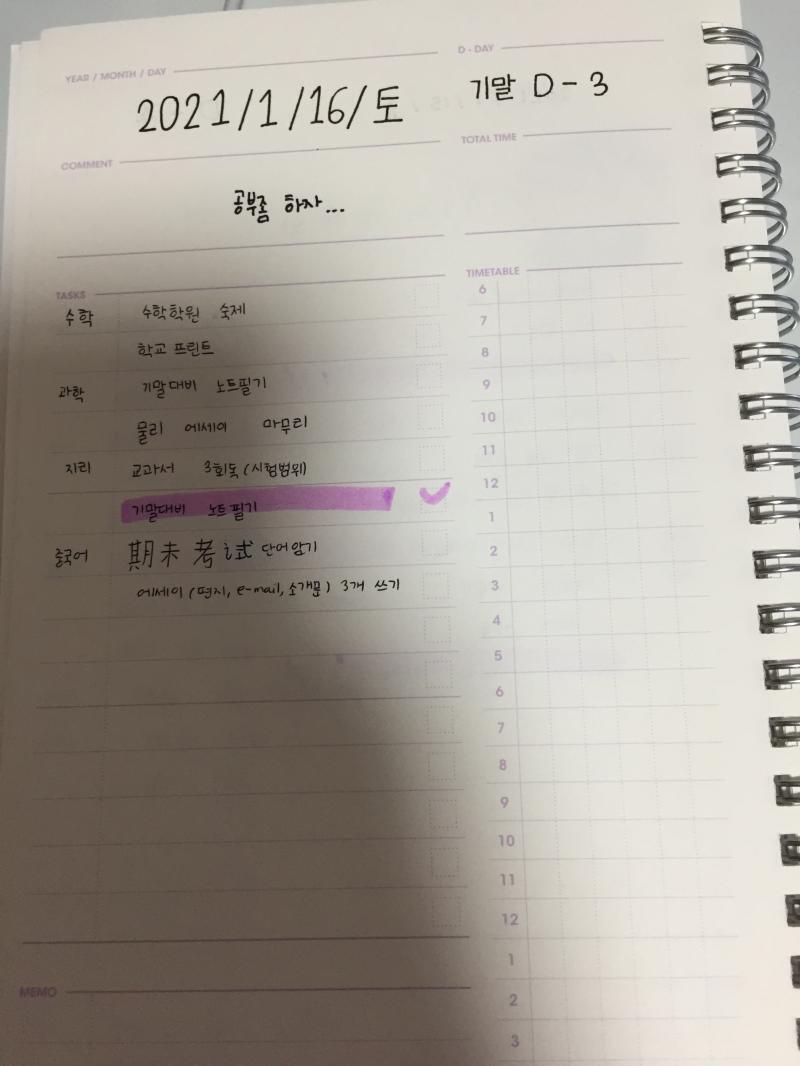 YEAR / MONTH / DAY
2021/1/16/토
D - DAY
기말 D-3
COMMENT
공부좀 하자...
TOTAL TIME
TASKS
수학 수학학원 숙제
학교 프린트
과학 기말대비 노트필기
물리 에세이 마무리
지리 교과서 3회독 (시험범위)
기말대비 노트필기
중국어 期末考试 단어암기
에세이 (편지, e-mail, 소개문) 3개 쓰기
MEMO
TIMETABLE
6
7
8
9
10
11
12
1
2
3
4
5
6
7
8
9
10
11
12
1
2
3